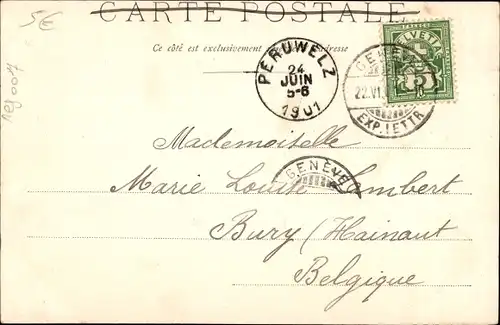 CARTE POSTALE
5€
Ce côté est exclusivement réservé à l'adresse
PÉRUWELZ
24
JUIN
5-6
1901
HELVETIA
GENÈVE
22.VI.
EXP. LETTR
Mademoiselle
GENÈVE
Marie Louise Lambert
Bury (Hainaut
Belgique